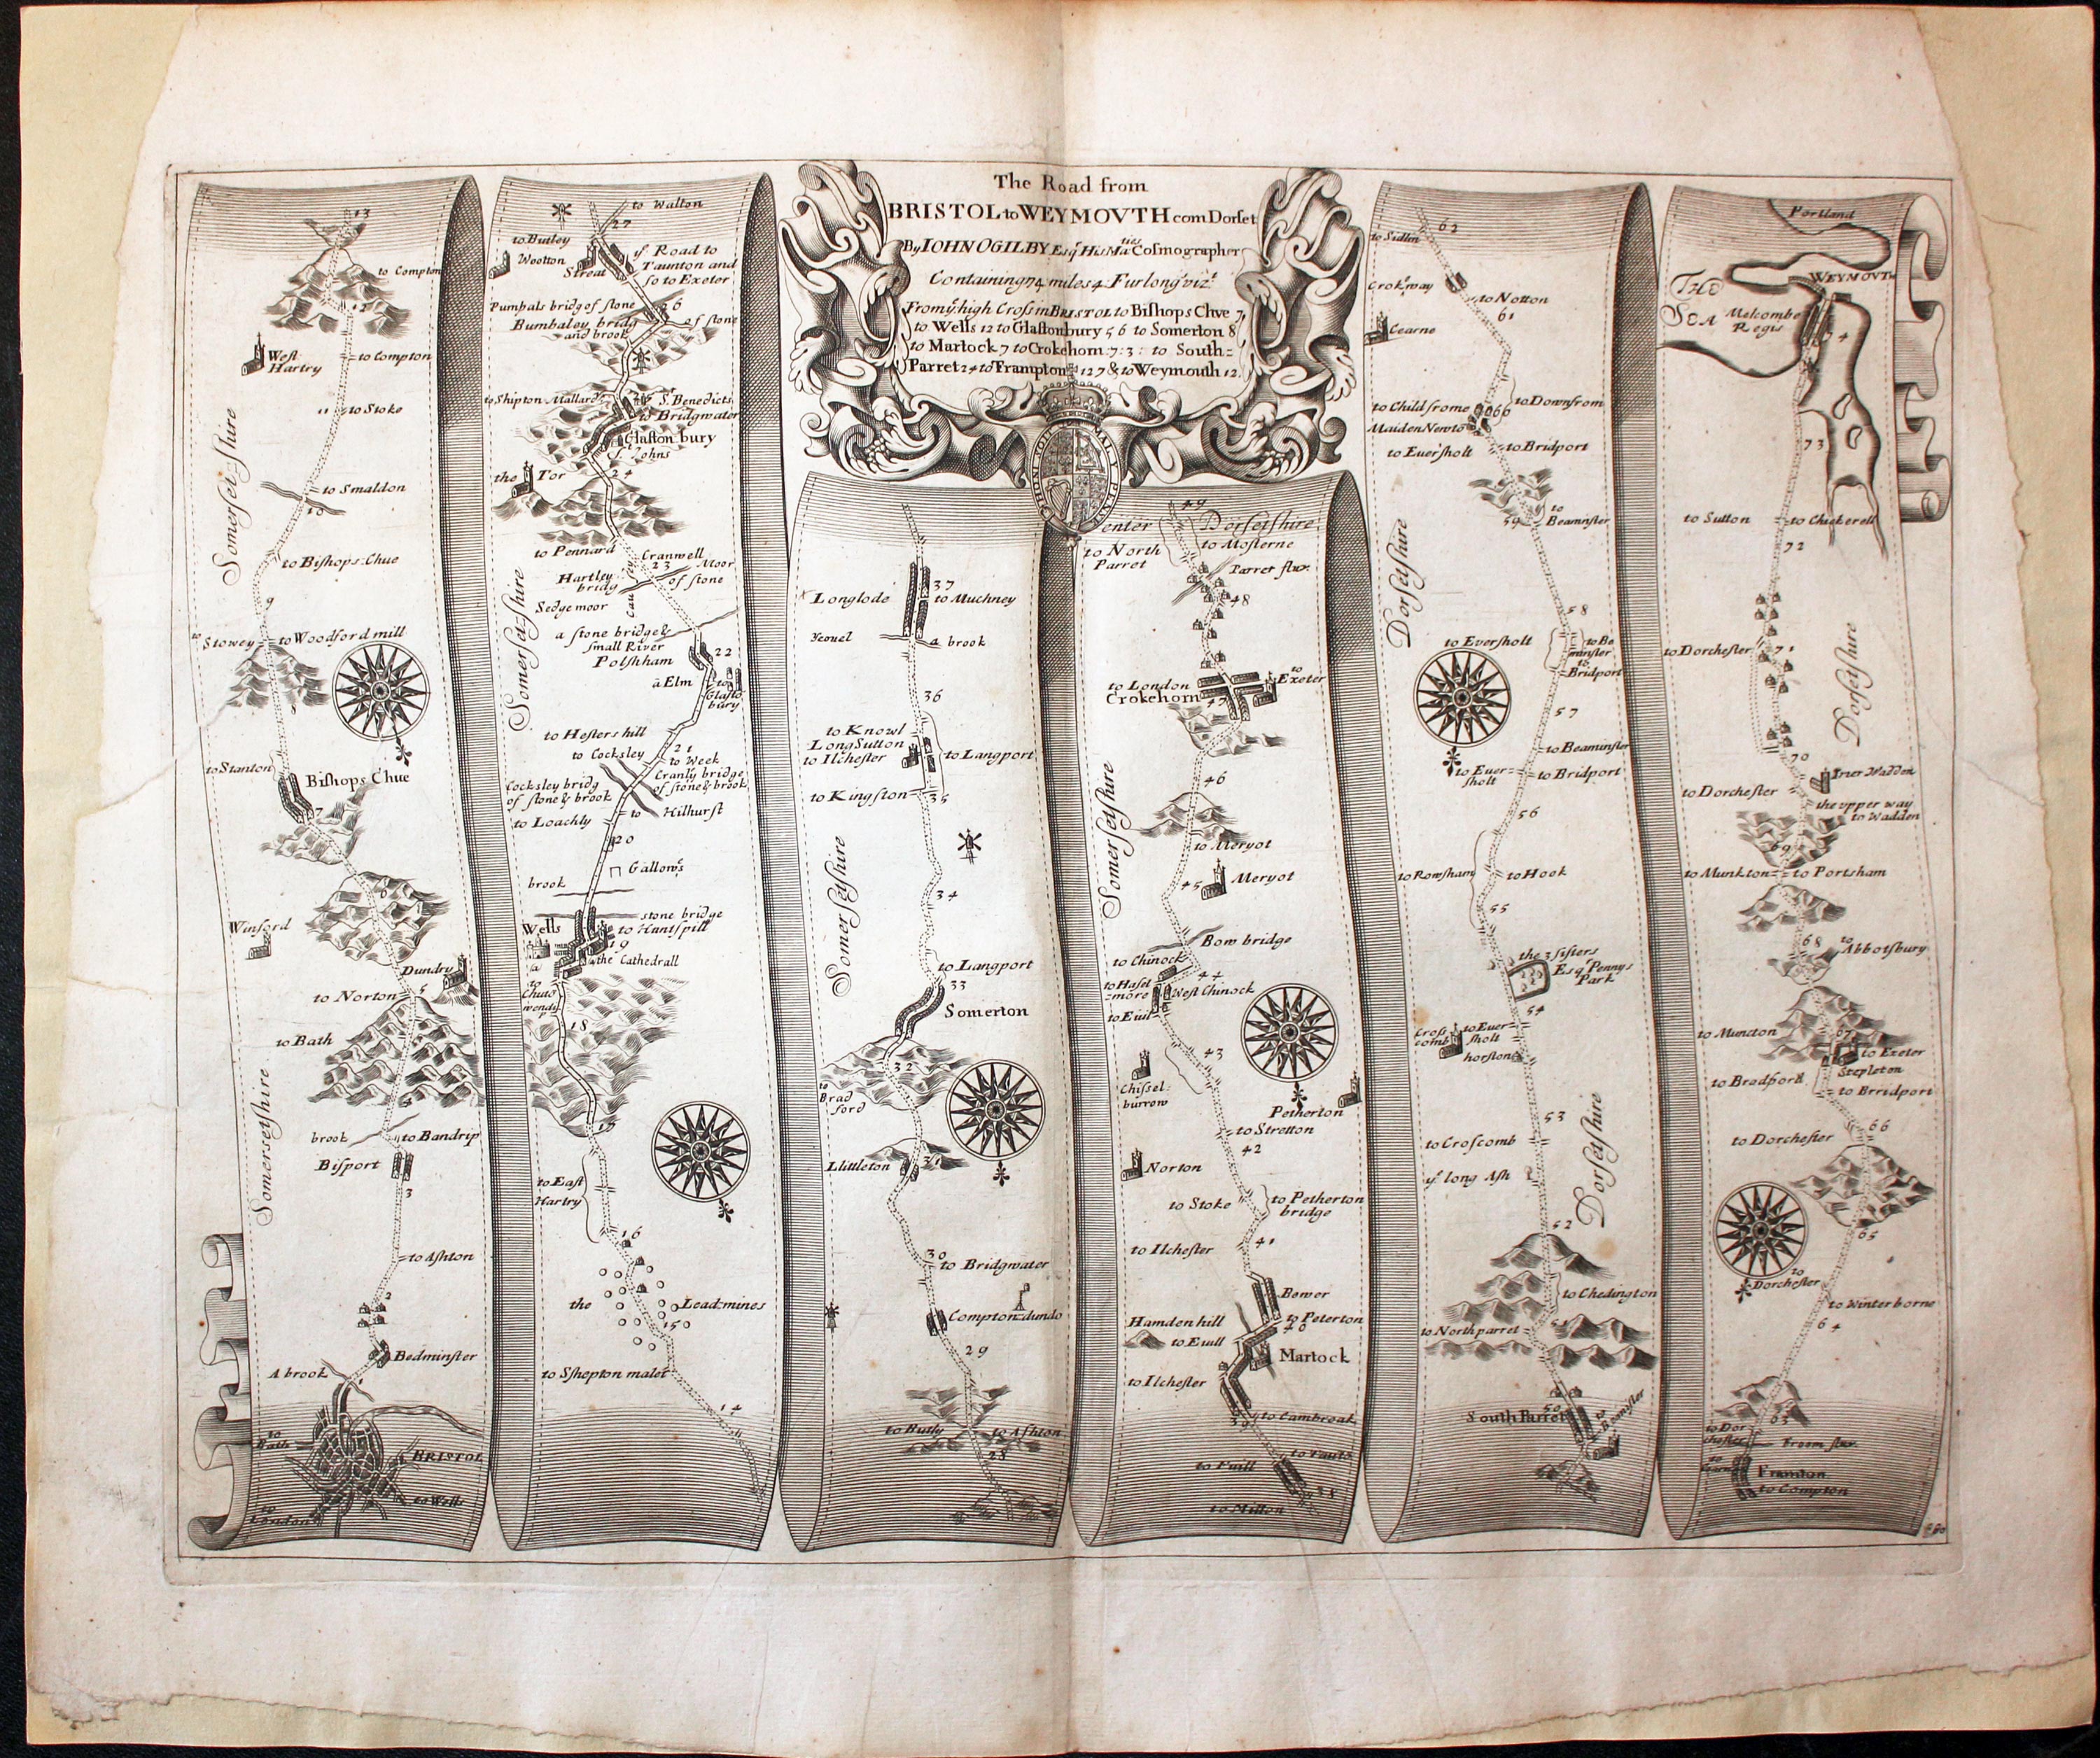 The Road from
BRISTOL to WEYMOVTH com Dorset
By IOHN OGILBY Esqr. His Maties Cosmographer
Containing 74 miles 4 Furlong vizt.
From ye high Cross in BRISTOL to Bishops Chve 7,
to Wells 12 to Glastonbury 5 6 to Somerton 8
to Martock 7 to Crokehorn 7:3: to South=
Parret 2 4 to Frampton 12 7 & to Weymouth 12.
13
to Compton
12
West
Hartry
to Compton
11
to Stoke
Somerset=shire
to Smaldon
10
to Bishops Chue
9
to
Stowey
to Woodford mill
to Stanton
Bishops Chue
7
6
Winford
Dundry
to Norton
5
to Bath
4
brook
to Bandrip
Bisport
3
Somersetshire
to Ashton
2
Bedminster
A brook
1
to
Bath
BRISTOL
to Wells
to
London
to Walton
27
to Butley
Wootton
Streat
ye Road to
Taunton and
so to Exeter
Pumbals bridg of stone
26
Bumbaley bridg
and brook
of stone
to Shipton Mallard
St. Benedicts
to Bridgwater
Glaston bury
St. Johns
the Tor
24
to Pennard
Cranwell
Moor
23
Hartley
bridg
of stone
Sedgemoor
cau
ey
a stone bridge &
small River
Polshham
22
a Elm
to
Glasto
bury
Somerset=shire
to Hesters hill
21
to Cocksley
to Week
Cocksley bridg
of stone & brook
Cranly bridge
of stone & brook
to Loachly
to Hilhurst
20
Gallows
brook
stone bridge
Wells
to Huntspill
19
the Cathedrall
to
Chuto
wends
18
17
to East
Hartry
16
the Leadmines
15
to Sshepton malet
14
37
Longlode
to Muchney
Yeouel
a brook
36
to Knowl
Long Sutton
to Ilchester
to Langport
to Kingston
35
Somersetshire
34
to Langport
33
Somerton
32
to
Brad
ford
31
Llittleton
30
to Bridgwater
Compton=dundo
29
to Butly
to Ashton
28
49
enter Dorsetshire
to North
Parret
to Mosterne
Parret flu.
48
to London
Crokehorn
47
to
Exeter
46
Somersetshire
to Meryot
45
Meryot
Bow bridge
to Chinock
44
to Hasel
=more
West Chinock
to Euil
43
Chissel:
burrow
Petherton
to Stretton
42
Norton
to Stoke
to Petherton
bridge
41
to Ilchester
Bower
Hamden hill
to Peterton
40
to Euill
Martock
to Ilchester
39
to Cambreak
to Euill
38
to Milton
62
to Sidlin
Crokeway
to Notton
61
Cearne
to Child frome
60
to Downfrom
Maiden Newto
to Euersholt
to Bridport
59
to
Beamnster
Dorsetshire
58
to Eversholt
to Be
minster
to
Bridport
57
to Beaminster
to Euer=
sholt
to Bridport
56
to Rowsham
to Hook
55
the 3 sisters
Esqr. Pennys
Park
54
Cross
comb
to Euer
sholt
horston
53
to Croscomb
ye. long Ash
Dorsetshire
52
to Chedington
51
to Northparret
50
South Parret
to
Beamister
Portland
THE
SEA
WEYMOVTH
Melcombe
Regis
74
73
to Sutton
to Chickerell
72
to Dorchester
71
Dorsetshire
70
Iner Wadden
to Dorchester
the upper way
to Wadden
69
to Munkton
to Portsham
68
to
Abbotsbury
67
to Muncton
to Exeter
Stepleton
to Bradford
to Brridport
66
to Dorchester
65
to
Dorchester
to Winterborne
64
63
to Dor
chester
Froom flu.
Framton
to Compton